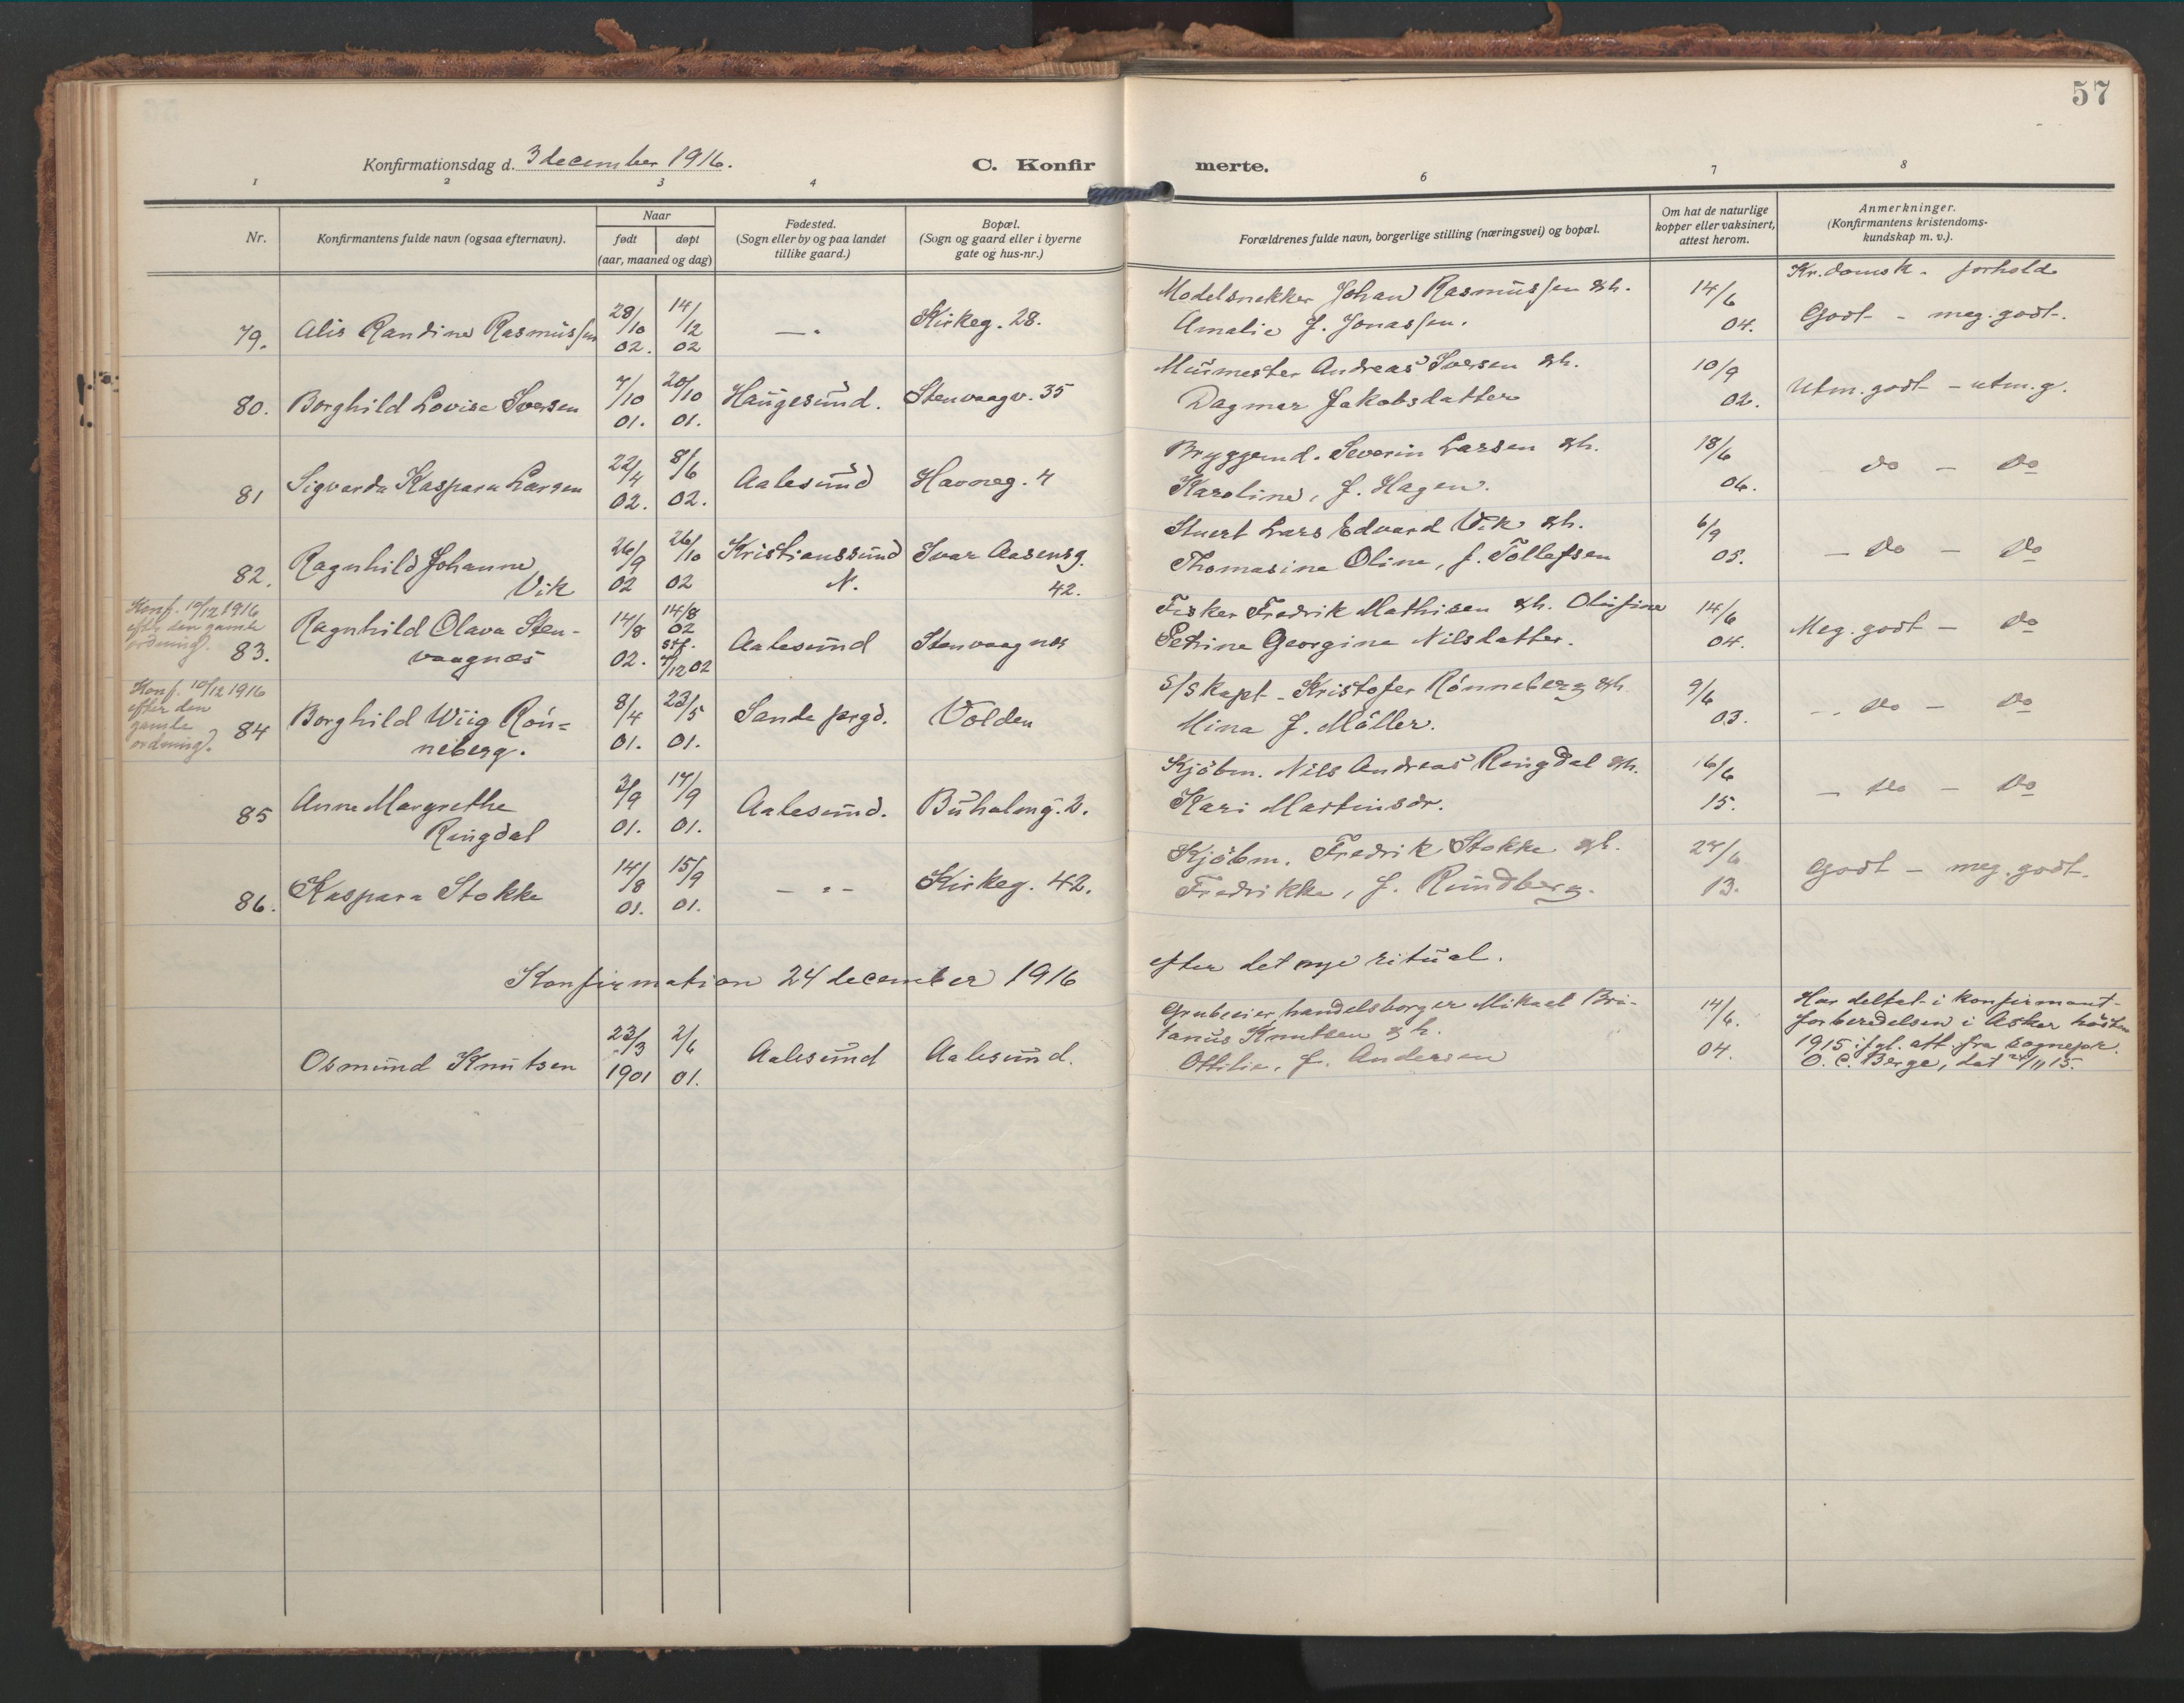 57
Konfirmationsdag d. 3 december 1916.
C. Konfir
merte.
1 2 3 4 6 7 8
Nr.
Konfirmantens fulde navn (ogsaa efternavn).
Naar
født døpt
(aar, maaned og dag)
Fødested.
(Sogn eller by og paa landet
tillike gaard.)
Bopæl.
(Sogn og gaard eller i byerne
gate og hus-nr.)
Forældrenes fulde navn, borgerlige stilling (næringsvei) og bopæl.
Om hat de naturlige
kopper eller vaksinert,
attest herom.
Anmerkninger.
(Konfirmantens kristendoms-
kundskap m. v.).
Kr.domsk. forhold
79. Alis Randine Rasmussen
28/10 02. 14/12 02
— " Kirkeg. 28.
Modelsnekker Johan Rasmussen &h.
Amalie f. Jonassen.
14/6 04.
Godt - meg. godt.
80. Borghild Lovise Iversen
7/10 01. 20/10 01.
Haugesund. Stenvaagv. 35
Murmester Andreas Iversen &h.
Dagmar Jakobsdatter
10/9 02.
Utm. godt - utm. g.
81 Sigvarda Kaspara Larsen
22/4 02. 8/6 02.
Aalesund Havneg. 4
Bryggemd. Severin Larsen &h.
Karoline, f. Hagen.
18/6 06.
- do - do
82. Ragnhild Johanne
Vik
26/9 02 26/10 02
Kristianssund
N.
Ivar Aasensg.
42.
Stuert Lars Edvard Vik &h.
Thomasine Oline, f. Tollefsen
6/9 05.
- do - do
Konf. 10/12 1916
efter den gamle
ordning.
83. Ragnhild Olava Sten-
vaagnes
14/8 02. 14/8 02 stf. 7/12 02
Aalesund Stenvaagnes
Fisker Fredrik Mathisen &h. Olufine
Petrine Georgine Nilsdatter.
14/6 04.
Meg. godt - do
Konf. 10/12 1916
efter den
gamle
ordning.
84 Borghild Wiig Rön-
neberg.
8/4 01. 23/5 01.
Sande prgd. Volden
S/S kapt. Kristofer Rönneberg &h
Mina f. Möller.
9/6 03.
- do - do
85 Anne Margrethe
Ringdal
3/9 01. 17/9 01.
Aalesund. Buholmg. 2.
Kjöbm. Nils Andreas Ringdal &h.
Kari Martinsdr.
16/6 15.
- do - do
86. Kaspara Stokke
14/8 01. 15/9 01.
- " - Kirkeg. 42.
Kjöbm. Fredrik Stokke &h.
Fredrikke, f. Rundberg.
24/6 13.
Godt - meg. godt.
Konfirmation 24 december 1916 efter det nye ritual.
Osmund Knutsen
23/3 1901 2/6 01.
Aalesund Aalesund.
Grubeeier, handelsborger Mikael Bri-
tanus Knutsen & h.
Ottilie, f. Andersen
14/6. 04.
Har deltat i konfirmant-
forberedelsen i Asker hösten
1915 ifgl. att. fra sognepr.
O. C. Berge, dat 24/11 15.